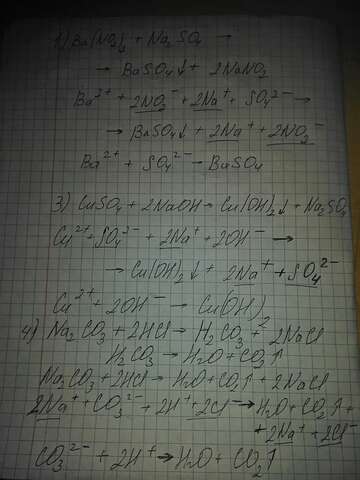 1) Ba(NO2)2 + Na2SO4 →
→ BaSO4↓ + 2NaNO2
Ba²⁺ + 2NO2⁻ + 2Na⁺ + SO4²⁻ →
→ BaSO4↓ + 2Na⁺ + 2NO2⁻
Ba²⁺ + SO4²⁻ → BaSO4
3) CuSO4 + 2NaOH → Cu(OH)2↓ + Na2SO4
Cu²⁺ + SO4²⁻ + 2Na⁺ + 2OH⁻ →
→ Cu(OH)2↓ + 2Na⁺ + SO4²⁻
Cu²⁺ + 2OH⁻ → Cu(OH)2
4) Na2CO3 + 2HCl → H2CO3 + 2NaCl
H2CO3 → H2O + CO2↑
Na2CO3 + 2HCl → H2O + CO2↑ + 2NaCl
2Na⁺ + CO3²⁻ + 2H⁺ + 2Cl⁻ → H2O + CO2↑ +
+ 2Na⁺ + 2Cl⁻
CO3²⁻ + 2H⁺ → H2O + CO2↑